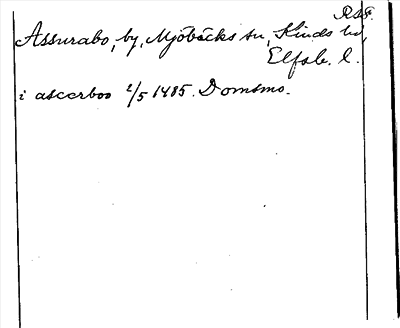 Assurabo, by, Mjöbäcks sn, Kinds hd,
Elfsb. l.
i ascerboo 2/5 1485. Domsmo.